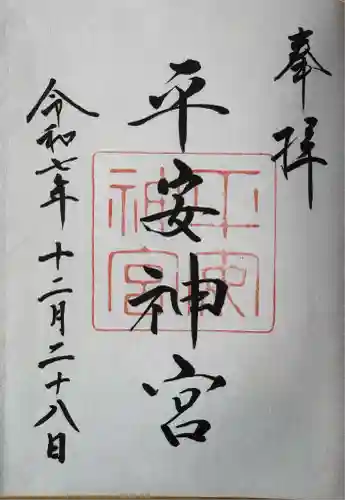 奉拝
平安神宮
令和七年十二月二十八日
平安神宮